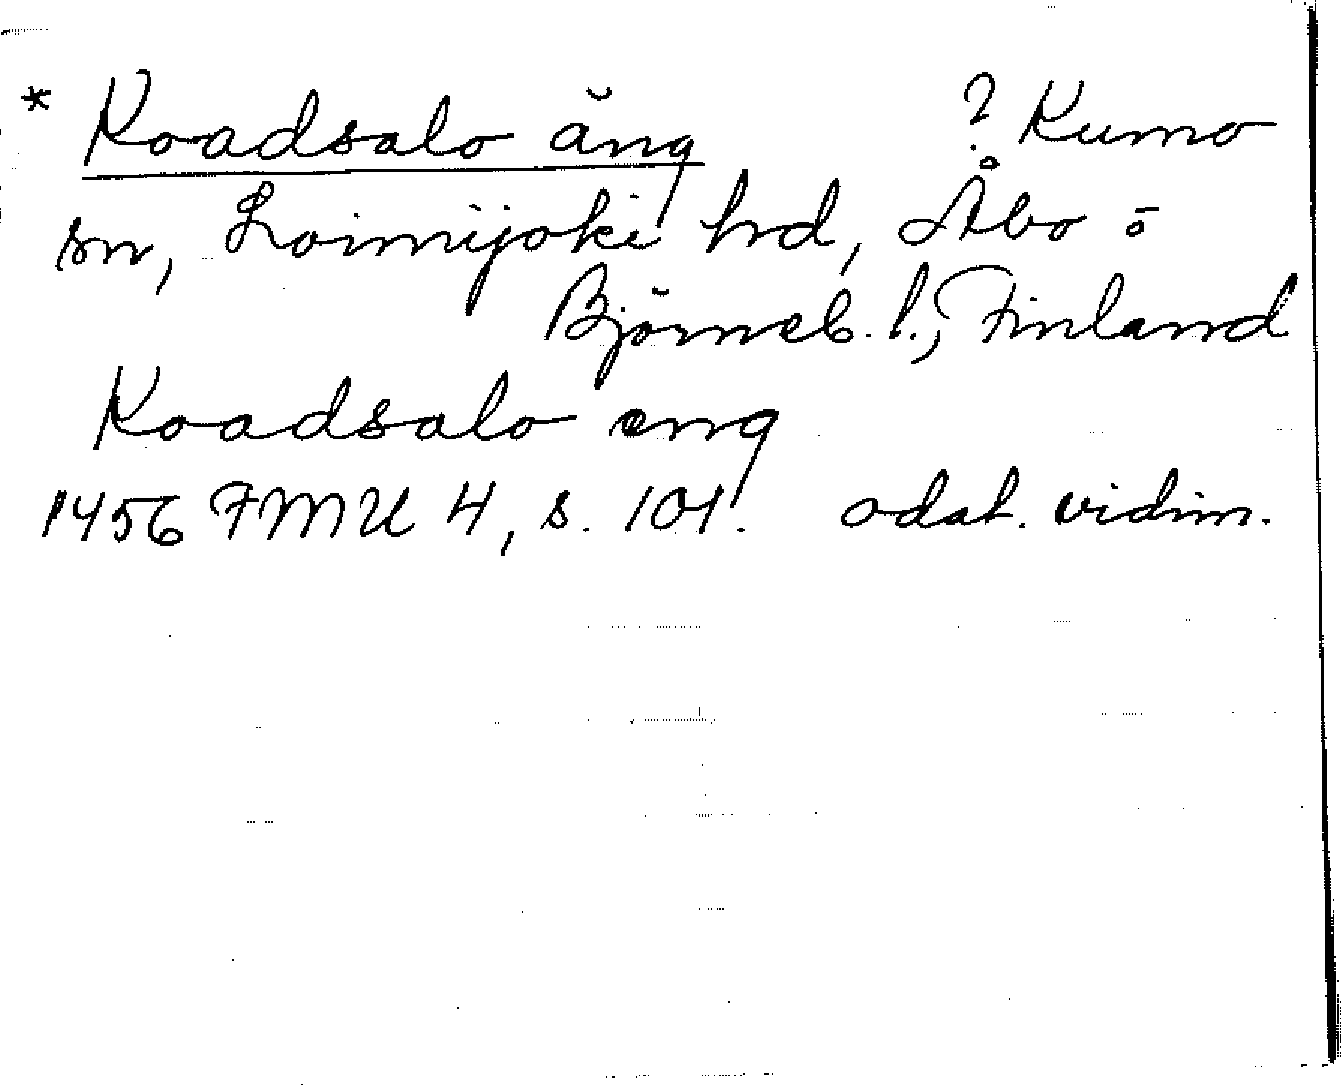 * Koadsalo äng ? Kumo
sn, Loimijoki hd, Åbo o
Björneb. l., Finland
Koadsalo eng
1456 FMU 4, s. 101. odat. vidim.